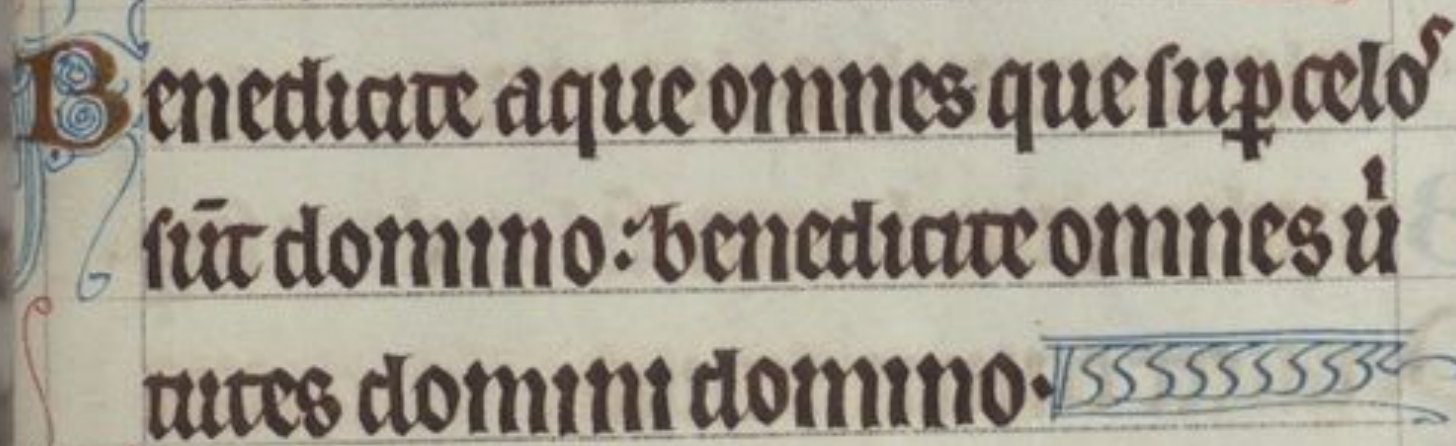 Benedicite aque omnes que sup̲ celoˢ
sūt domino: benedicite omnes uⁱ
tutes domini domino.